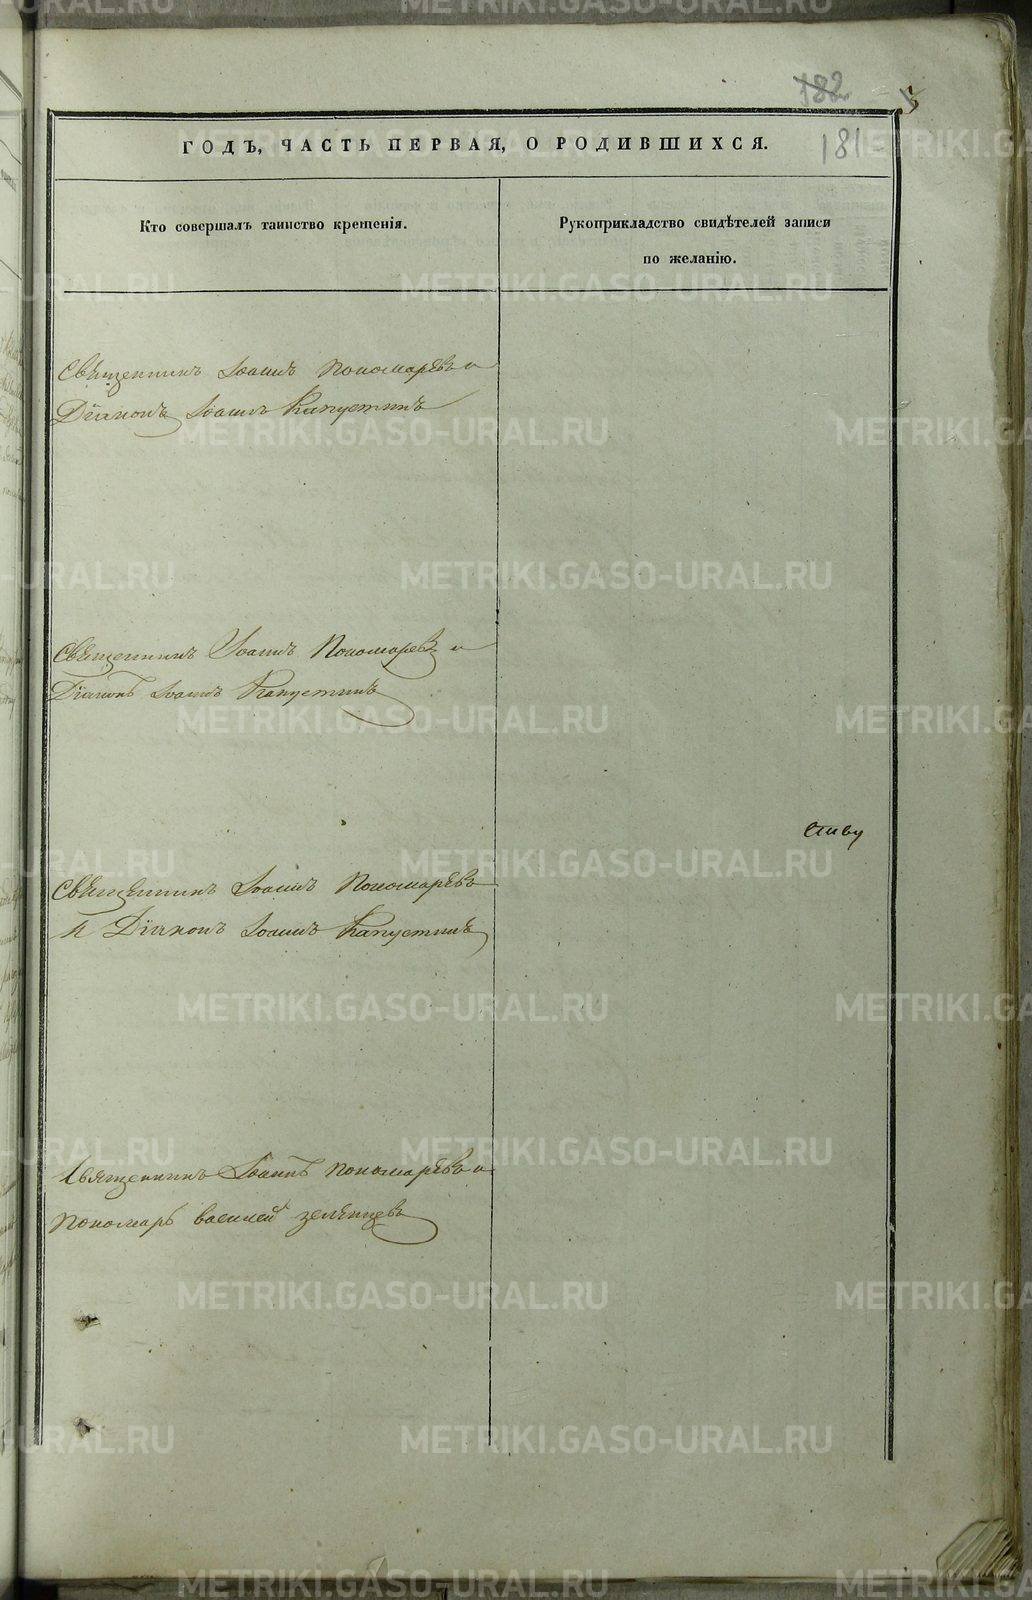 182
5
181
ГОДЪ, ЧАСТЬ ПЕРВАЯ, О РОДИВШИХСЯ.
Кто совершалъ таинство крещенія.
Рукоприкладство свидѣтелей записи
по желанію.
Священникъ Іоаннъ Пономаревъ и
Діаконъ Іоаннъ Капустинъ
Священникъ Іоаннъ Пономаревъ и
Діаконъ Іоаннъ Капустинъ
Священникъ Іоаннъ Пономаревъ
и Діаконъ Іоаннъ Капустинъ
Священникъ Іоаннъ Пономаревъ и
Пономарь Василей Зеленцевъ
METRIKI.GASO-URAL.RU